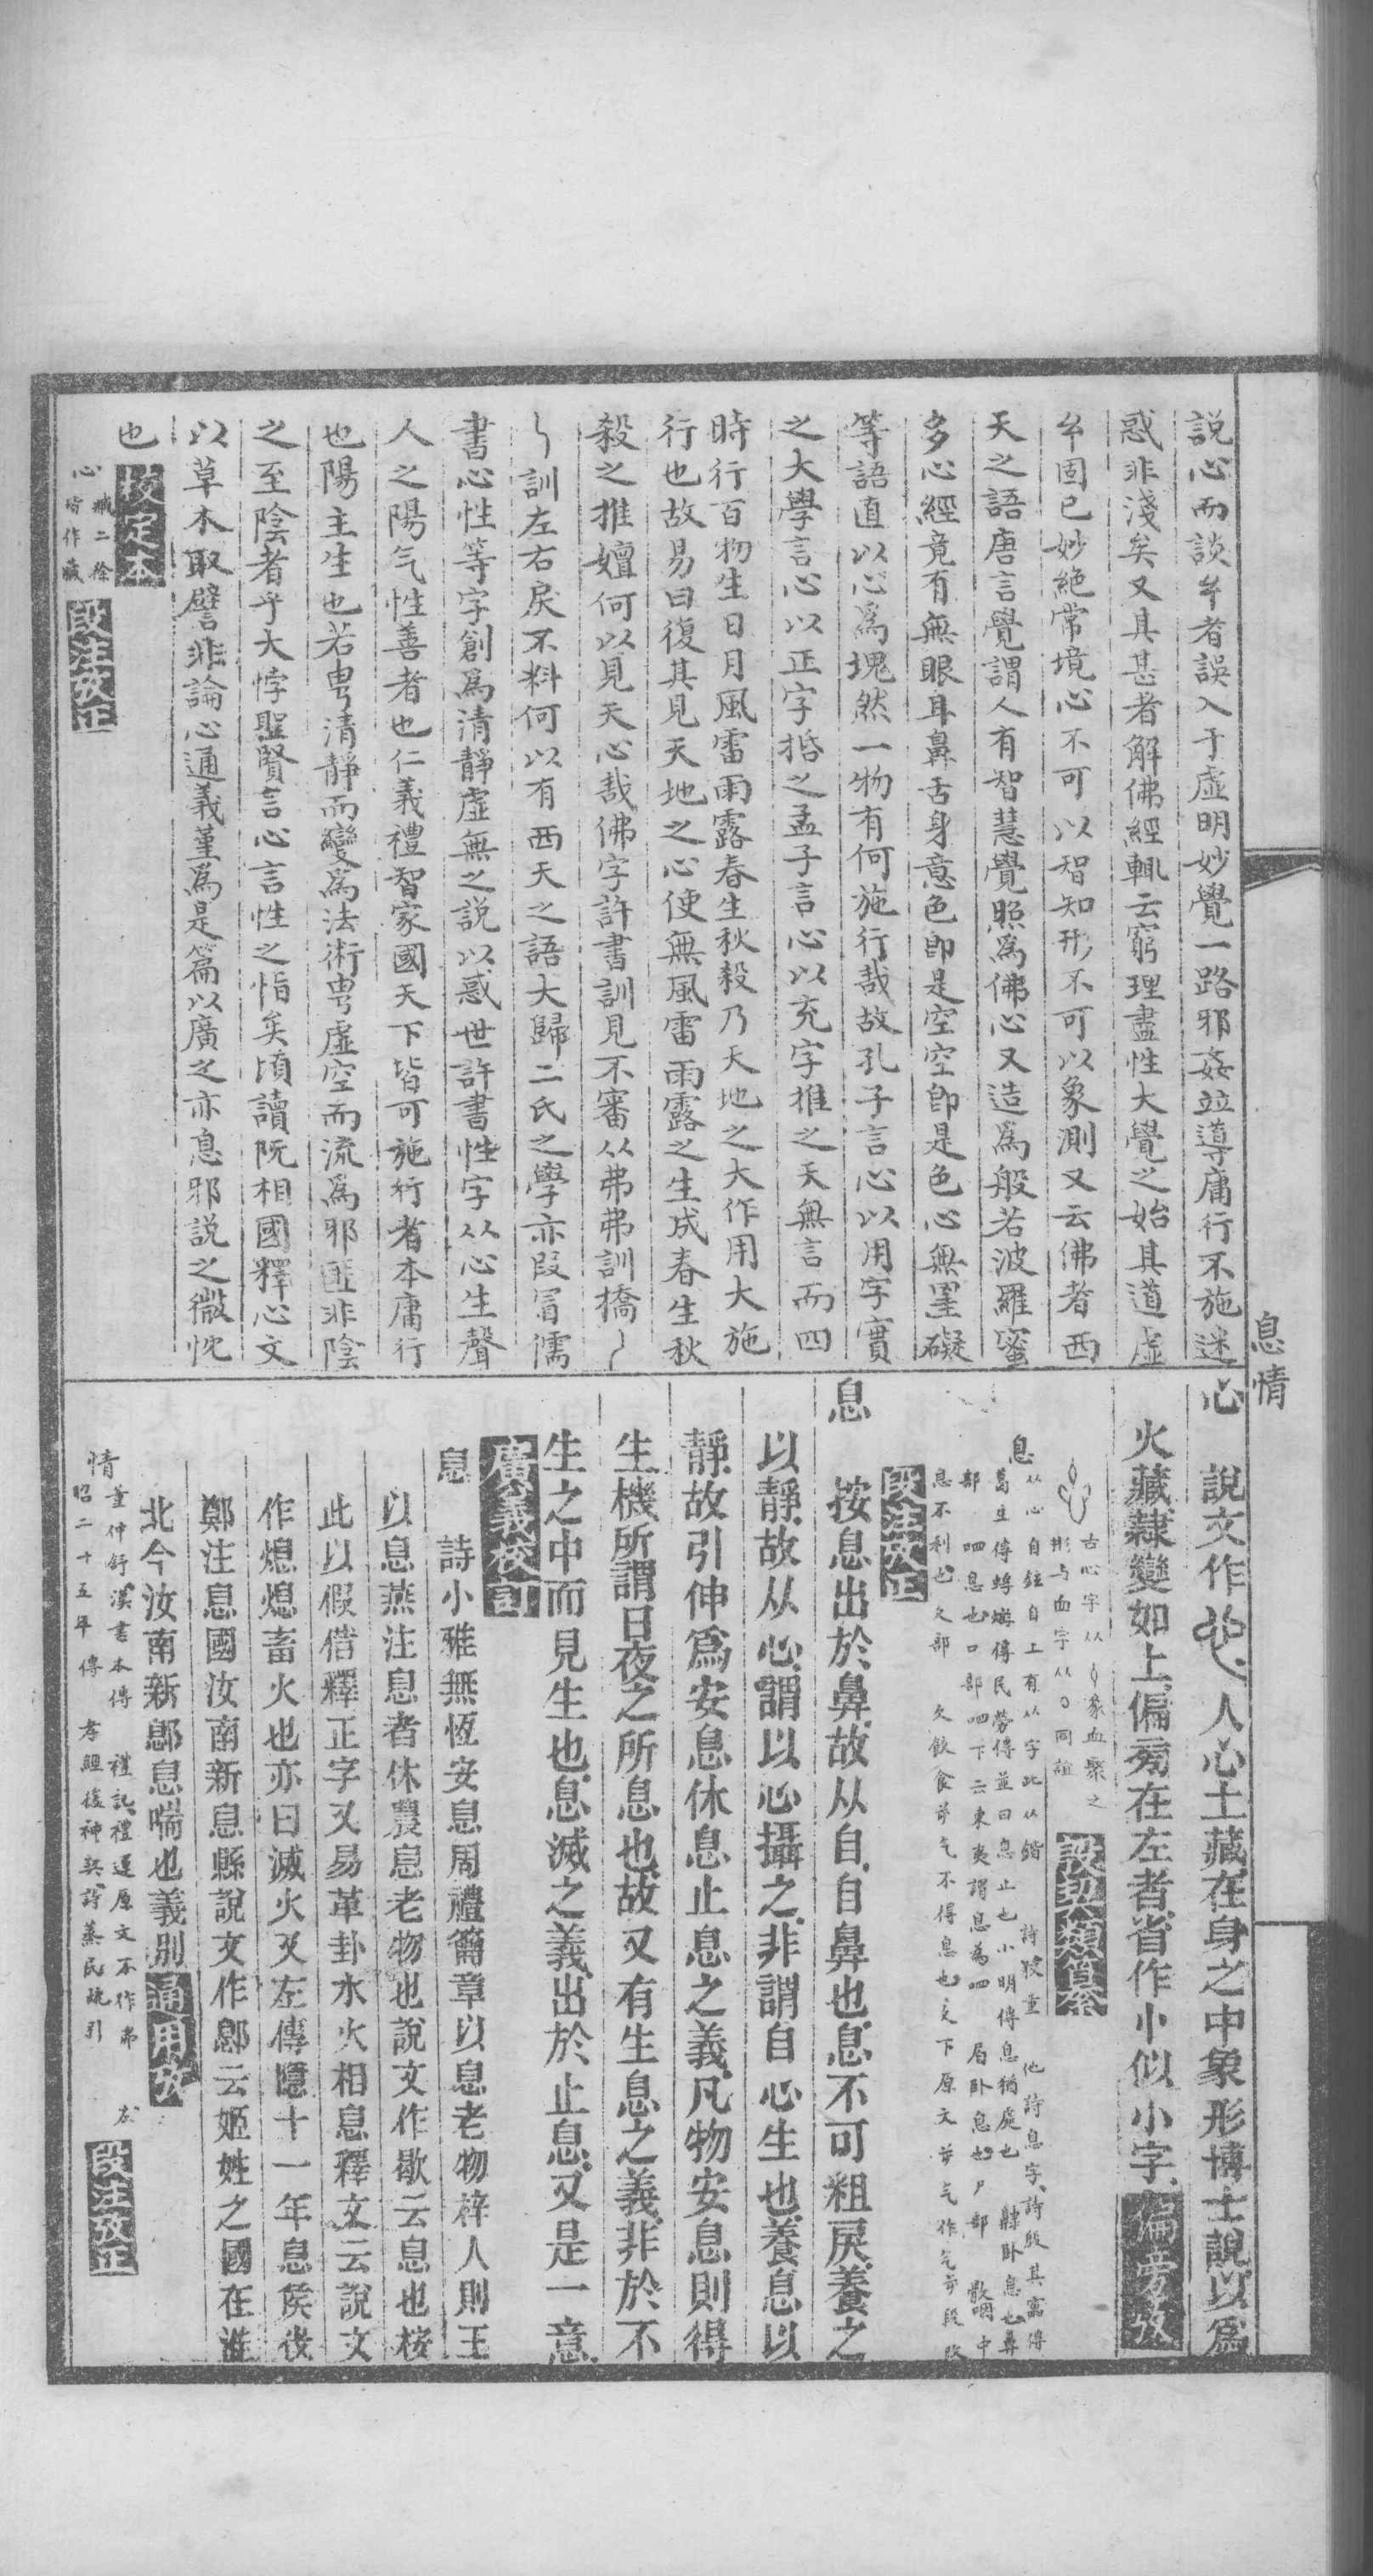 息情
説心而談幺者誤入于虛明妙覺一路邪姦竝導庸行不施迷
惑非淺矣又其甚者解佛經輒云窮理盡性大覺之始其道虛
幺固已妙絶常境心不可以智知形不可以象測又云佛者西
天之語唐言覺謂人有智慧覺照爲佛心又造爲般若波羅蜜
多心經竟有無眼耳鼻舌身意色即是空空即是色心無罣礙
等語直以心爲塊然一物有何施行哉故孔子言心以用字實
之大學言心以正字捂之孟子言心以充字推之天無言而四
時行百物生日月風雷雨露春生秋殺乃天地之大作用大施
行也故易曰復其見天地之心使無風雷雨露之生成春生秋
殺之推嬗何以見天心哉佛字許書訓見不審从弗弗訓撟丿
乀訓左右戾不料何以有西天之語大歸二氏之學亦叚冒儒
書心性等字創爲清靜虛無之説以惑世許書性字从心生聲
人之陽气性善者也仁義禮智家國天下皆可施行者本庸行
也陽主生也若専清靜而變爲法術専虛空而流爲邪匪非陰
之至陰者乎大悖聖賢言心言性之恉矣頃讀阮相國釋心文
以草木取譬非論心通義堇爲是篇以廣之亦息邪説之微忱
也 段定本
心 臧二徐
皆作藏 段注攷正
心 說文作 人心土藏在身之中象形博士說以爲
火藏隷變如上偏旁在左者省作忄似小字 偏旁攷
古心字从 象血聚之
形与血字从 同誼 說契類纂
息 从心自鉉自上有从字此从鍇 詩狡童 他詩息字詩殷其靁傳
葛生傳蜉蝣傳民勞傳並曰息止也小明傳息猶處也 𣩠卧息也鼻
部 呬息也口部呬下云東夷謂息爲呬 眉卧息也尸部 中
息不利也欠部 欠飲食气不得息也 下原文 气作气 段改
段注攷正
息 按息出於鼻故从自自鼻也息不可粗戾養之
以靜故从心謂以心攝之非謂自心生也養息以
靜故引伸爲安息休息止息之義凡物安息則得
生機所謂日夜之所息也故又有生息之義非於不
生之中而見生也息滅之義出於止息又是一意
廣義校訂
息 詩小雅無恆安息周禮籥章以息老物梓人則王
以息燕注息者休農息老物也說文作歇云息也桉
此以假借釋正字又易革卦水火相息釋文云說文
作熄熄畜火也亦曰滅火又左傳隱十一年息侯伐
鄭注息國汝南新息縣說文作鄎云姬姓之國在淮
北今汝南新鄎息喘也義別 通用攷
情 董仲舒漢書本傳 禮記禮運原文不作弗 左
昭二十五年傳 孝經援神契詩蒸民疏引 段注攷正